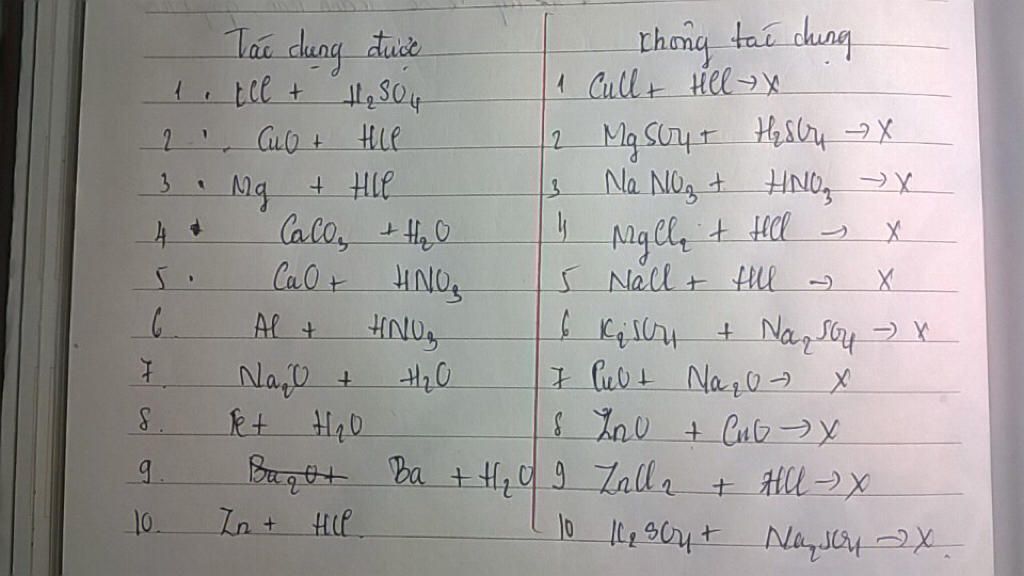 Tác dụng được
1. HCl + H₂SO₄
2. CuO + HCl
3. Mg + HCl
4 CaCO₃ + H₂O
5. CaO + HNO₃
6 Al + HNO₃
7. Na₂O + H₂O
8. Fe + H₂O
9. Ba₂O + Ba + H₂O
10. Zn + HCl
không tác dụng
1 CuCl + HCl → X
2 MgSO₄ + H₂SO₄ → X
3 NaNO₃ + HNO₃ → X
4 MgCl₂ + HCl → X
5 NaCl + HCl → X
6 K₂SO₄ + Na₂SO₄ → X
7 CuO + Na₂O → X
8 ZnO + CuO → X
9 ZnCl₂ + HCl → X
10 K₂SO₄ + Na₂SO₄ → X